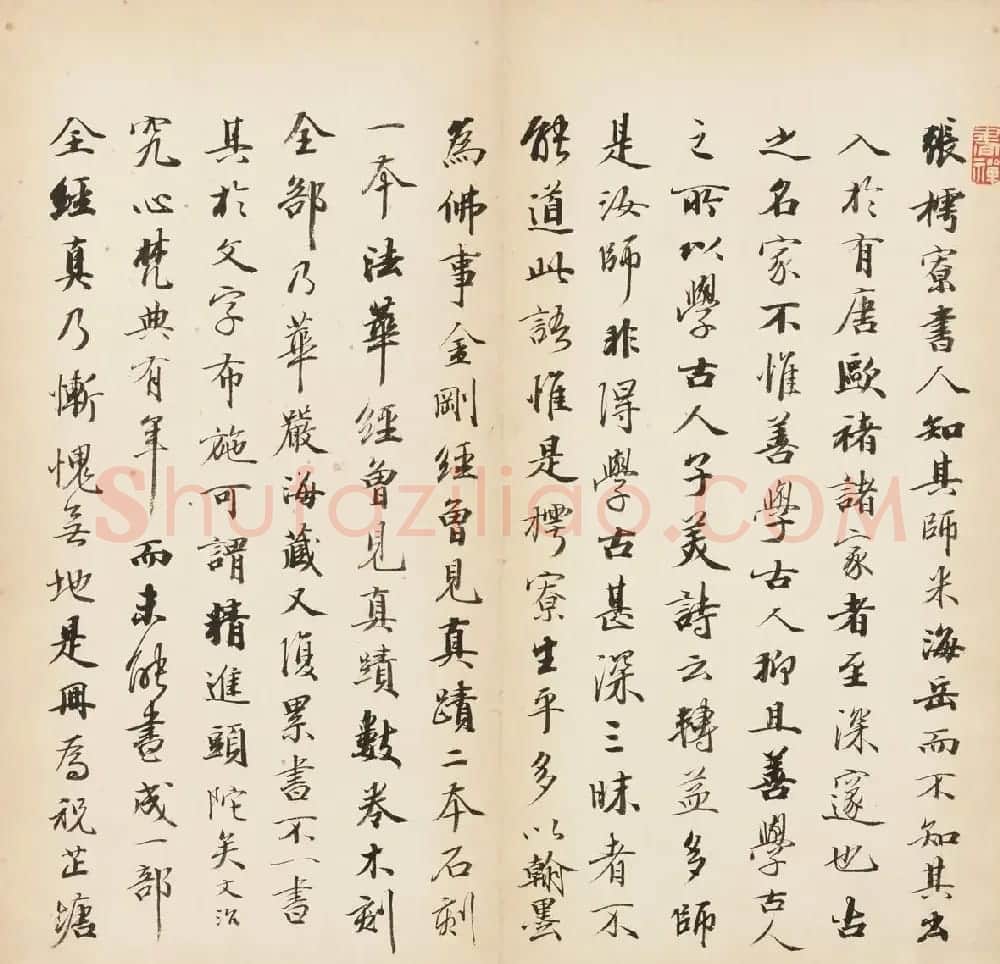 張樗寮書人知其師米海岳而不知其出
入於有唐歐褚諸家者至深邃也古
之名家不惟善學古人抑且善學古人
之所以學古人子美詩云轉益多師
是汝師非得學古甚深三昧者不
能道此語惟是樗寮生平多以翰墨
為佛事金剛經曾見真蹟二本石刻
一本法華經曾見真蹟數卷木刻
全部乃華嚴海藏又復累書不一書
其於文字布施可謂精進頭陀矣文治
究心梵典有年而未能書成一部
全經真乃慚愧無地是冊為祝芷塘
Shufaziliao.COM